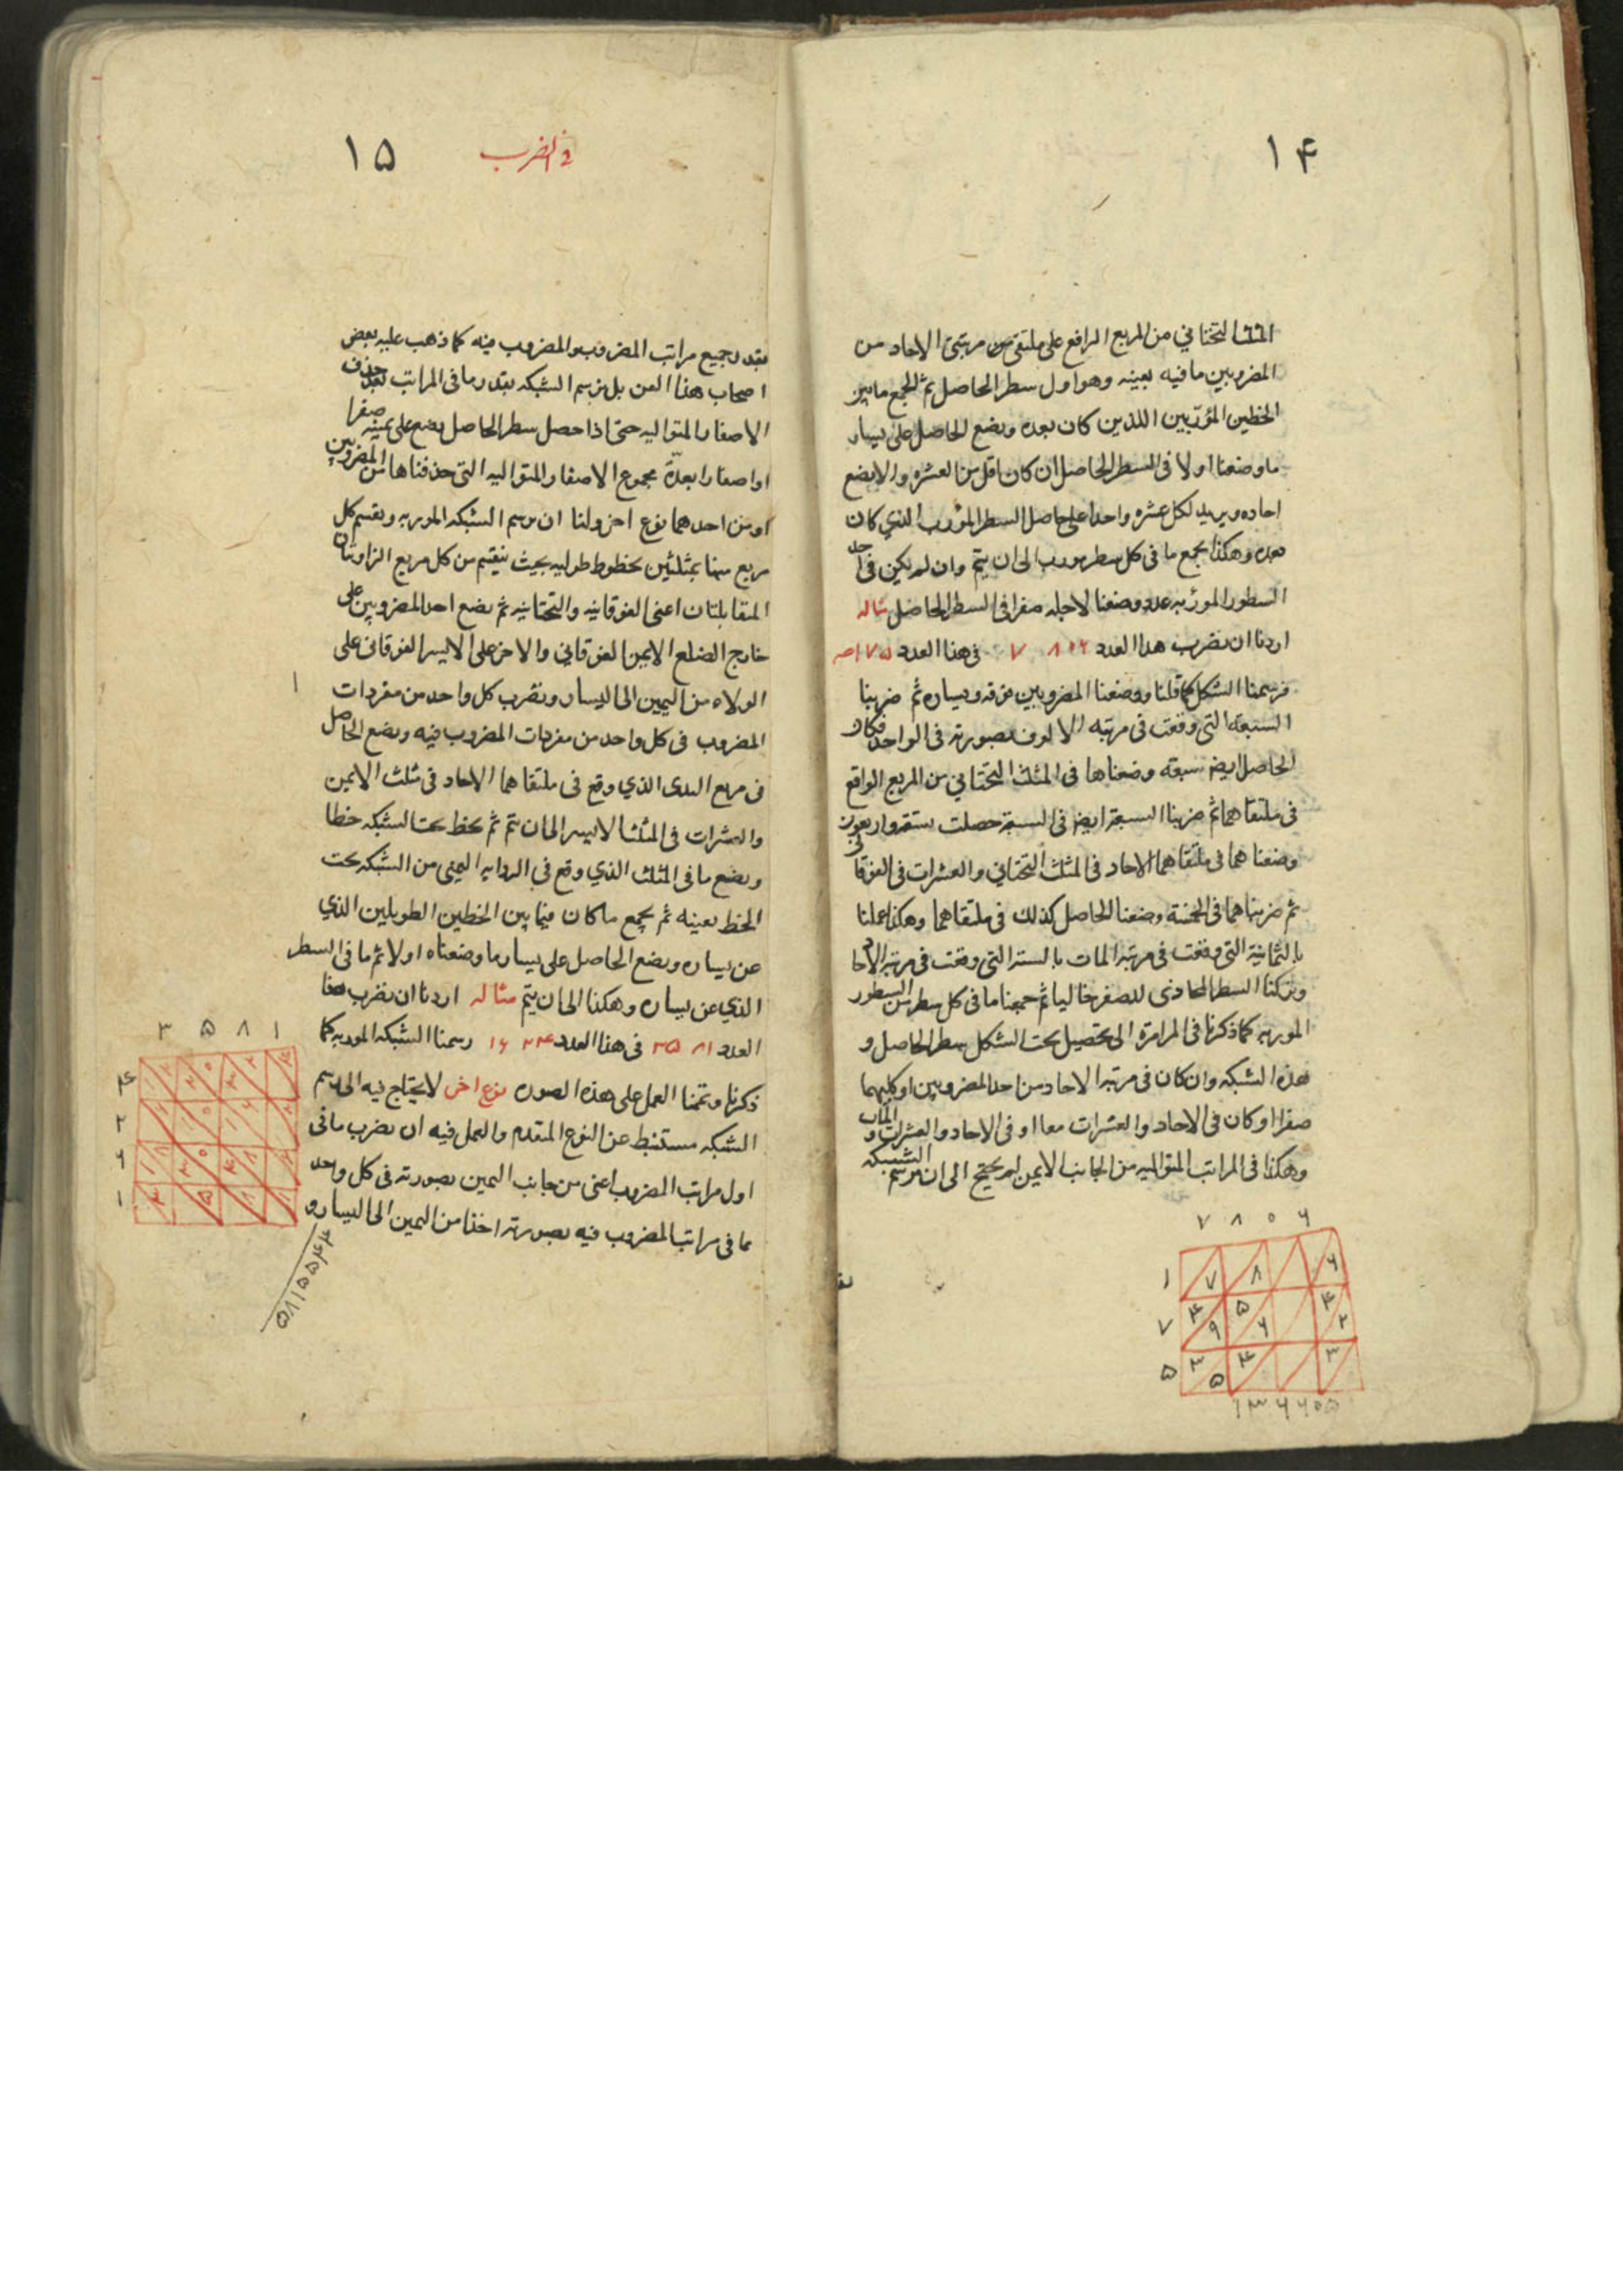 ١۴
المثلث التحتاني من المربع الواقع على ملتقى مرتبتي الاحاد من
المضروبين ما فيه بعينه وهو اول سطر الحاصل ثم نجمع ما بين
الخطين المؤربين اللذين كان بعده ونضع الحاصل على يسار
ما وضعنا اولا فى السطر الحاصل ان كان اقل من العشره والا نضع
احاده ونزيد لكل عشره واحدا على حاصل السطر المؤرب الذي كان
بعده وهكذا نجمع ما فى كل سطر مورب الى ان يتم وان لم يكن فى احد
السطور المؤربه عدد وضعنا لاجله صفرا فى السطر الحاصل مثاله
اردنا ان نضرب هذا العدد ٧٨٠۶ فى هذا العدد ١٧۵
فرسمنا الشكل كما قلنا ووضعنا المضروبين فوقه ويساره ثم ضربنا
السبعه التى وقعت فى مرتبه الالوف بصورته فى الواحد فكان
الحاصل ايضا سبعه وضعناها فى المثلث التحتاني من المربع الواقع
فى ملتقاهما ثم ضربنا السبعة ايضا فى السبعة حصلت تسعة واربعون
وضعناهما فى ملتقاهما الاحاد فى المثلث التحتاني والعشرات فى الفوقانى
ثم ضربناهما فى الخمسة وضعنا الحاصل كذلك فى ملتقاهما وهكذا عملنا
بالثمانية التى وقعت فى مرتبة المات بالستة التى وقعت فى مرتبة الاحاد
وتركنا السطر المحاذى للصفر خاليا ثم جمعنا ما فى كل سطر من السطور
الموربه كما ذكرنا فى المرامزه الى تحصيل تحت الشكل سطر الحاصل و
هذه الشبكه وان كان فى مرتبة الاحاد من احد المضروبين او كليهما
صفرا او كان فى الاحاد والعشرات معا او فى الاحاد والعشرات والمات
وهكذا فى المراتب المتواليه من الجانب الايمن لم يحتج الى ان نرسم الشبكه
٧ ٨ ٠ ۶
١ ٧ ٨ ۶
۴ ۵ ۴
٧ ٩ ۶ ٢
۵ ٣ ۴ ٣
۵
١٣۶۶٠۵٠
١۵ فى الضرب
بقدر جميع مراتب المضروب والمضروب فيه كما ذهب عليه بعض
اصحاب هذا الفن بل نرسم الشبكه بقدر ما فى المراتب بعد حذف
الاصفار المتواليه حتى اذا حصل سطر الحاصل نضع على يمينه صفرا
او اصفارا بعدة مجموع الاصفار المتواليه التى حذفناها من المضروبين
او من احدهما نوع اخر ولنا ان نرسم الشبكه الموربه ونقسم كل
مربع منها بمثلثين بخطوط طوليه بحيث ينقسم من كل مربع الزاويتان
المتقابلتان اعنى الفوقانيه والتحتانيه ثم نضع احد المضروبين على
خارج الضلع الايمن الفوقاني والاخر على الايسر الفوقانى على
الولاء من اليمين الى اليسار ونضرب كل واحد من مفردات
المضروب فى كل واحد من مفردات المضروب فيه ونضع الحاصل
فى مربع الذي وقع فى ملتقاهما الاحاد فى مثلث الايمن
والعشرات فى المثلث الايسر الى ان يتم ثم نخط تحت الشبكه خطا
ونضع ما فى المثلث الذي وقع في الزوايه اليمنى من الشبكه تحت
الخط بعينه ثم نجمع ما كان فيما بين الخطين الطويلين الذي
عن يساره ونضع الحاصل على يسار ما وضعناه اولا ثم ما فى السطر
الذي عن يساره وهكذا الى ان يتم مثاله اردنا ان نضرب هذا
العدد ٣۵٨١ فى هذا العدد ١۶٢۴ رسمنا الشبكه الموربه كما
ذكرنا وتممنا العمل على هذه الصوره نوع اخر لا يحتاج فيه الى رسم
الشبكه مستنبط عن النوع المتقدم والعمل فيه ان نضرب ما فى
اول مراتب المضروب اعنى من جانب اليمين بصورته فى كل واحد
مما فى مراتب المضروب فيه بصورته اخذا من اليمين الى اليسار و
٣ ۵ ٨ ١
۴
٢
۶
١
۵٨١۵۵۴۴